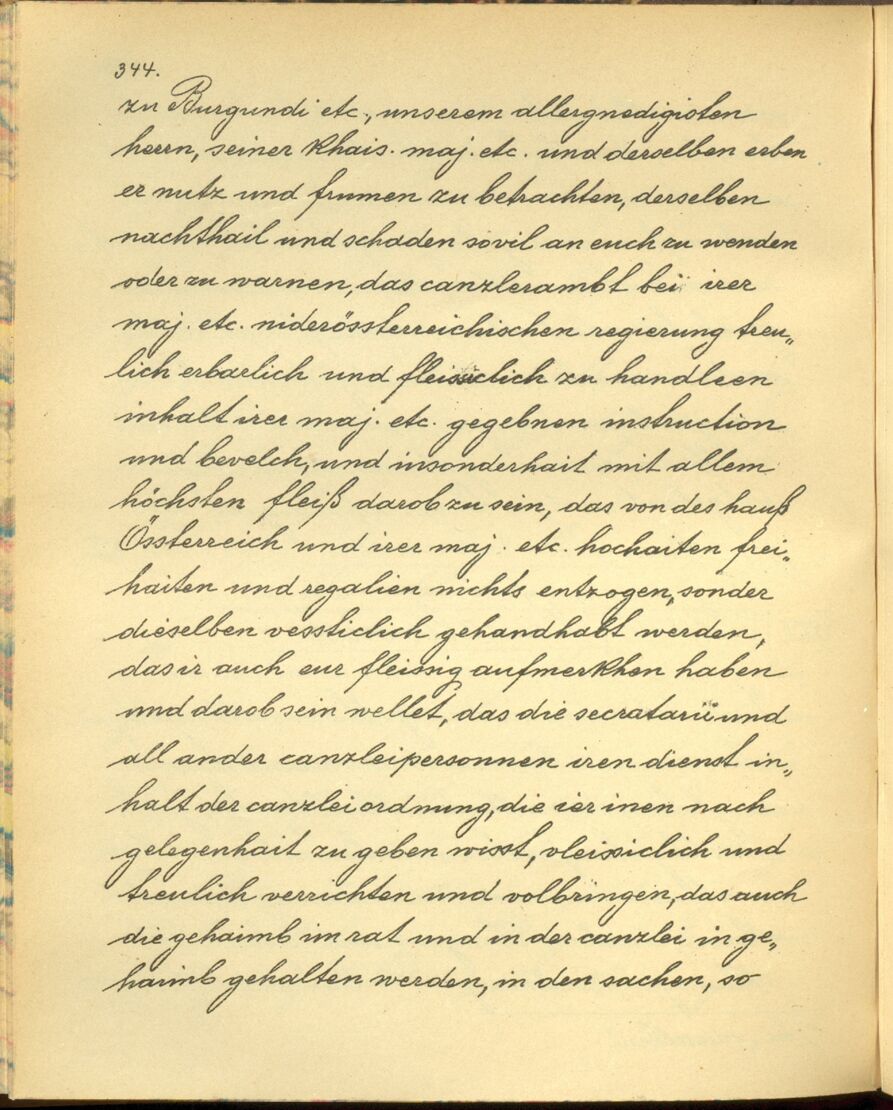 344.
zu Burgundi etc., unserem allergnedigisten
herrn, seiner khais. maj. etc. und derselben erben
er nutz und frumen zu betrachten, derselben
nachthail und schaden sovil an euch zu wenden
oder zu warnen, das canzlerambt bei irer
maj. etc. niderössterreichischen regierung treu„
lich erbarlich und fleissiclich zu handleen
inhalt irer maj. etc. gegebnen instruction
und bevelch, und insonderhait mit allem
höchsten fleiß darob zu sein, das von des hauß
Össterreich und irer maj. etc. hochaiten frei„
haiten und regalien nichts entzogen, sonder
dieselben vessticlich gehandhabt werden,
das ir auch eur fleissig aufmerkhen haben
und darob sein wellet, das die secratarii und
all ander canzleipersonnen iren dienst in„
halt der canzleiordnung, die ier inen nach
gelegenhait zu geben wisst, vleissiclich und
treulich verrichten und volbringen, das auch
die gehaimb im rat und in der canzlei in ge„
haimb gehalten werden, in den sachen, so